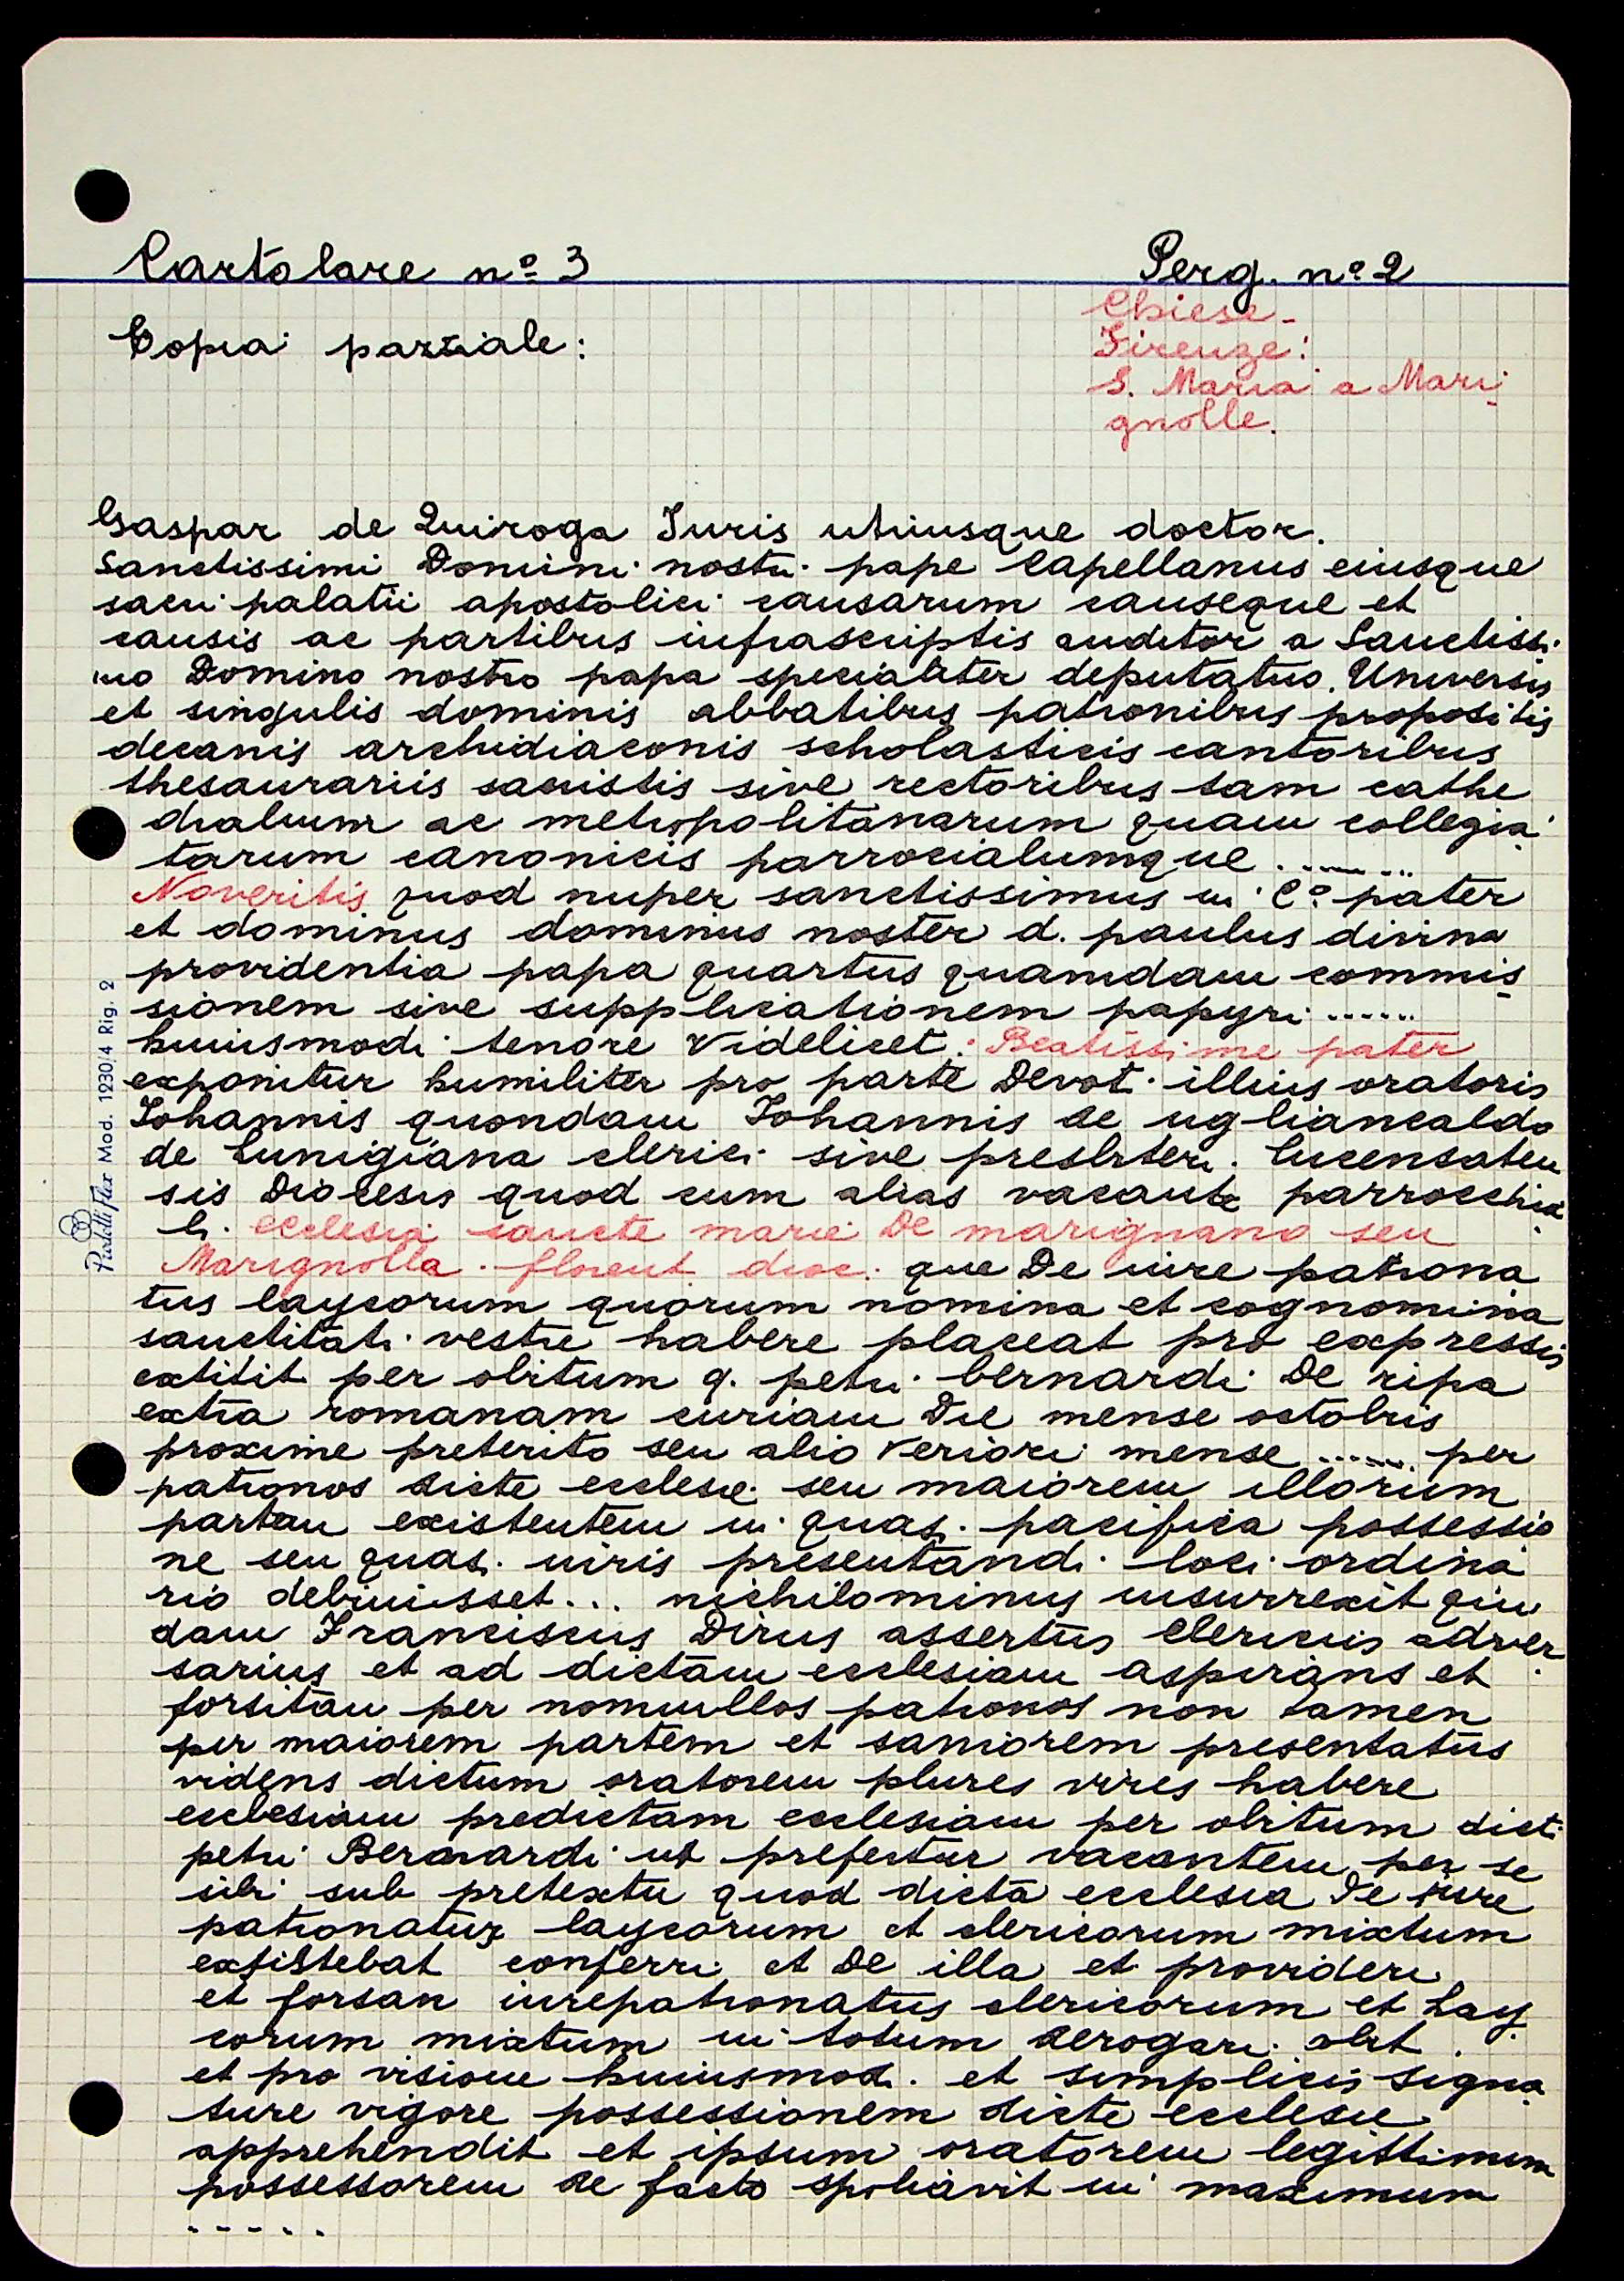 Cartolare nº 3
Perg. nº 2
Chiese -
Firenze:
S. Maria a Mari-
gnolle.
Copia parziale:
Gaspar de Quiroga Iuris utriusque doctor.
Sanctissimi Domini nostri pape Capellanus eiusque
sacri palatii apostolici causarum causeque et
causis ac partibus infrascriptis auditor a Sanctissi-
mo Domino nostro papa specialiter deputatus. Universis
et singulis dominis abbatibus patronibus propositis
decanis archidiaconis scholasticis cantoribus
thesaurariis sacristis sive rectoribus tam cathe
dralium ac metropolitanarum quam collegia-
tarum canonicis parrocialiumque .......
Noveritis quod nuper sanctissimus in Cº pater
et dominus dominus noster d. paulus divina
providentia papa quartus quamdam commis-
sionem sive supplicationem papyri ......
huiusmodi tenore Videlicet: Beatissime pater
exponitur humiliter pro parte Devot. illius oratoris
Iohannis quondam Iohannis de ugliancaldo
de Lunigiana clerici sive presbiteri. Lucensaten
sis Diocesis quod cum alias vacante parrocchia-
li. ecclesia sancte marie De marignano seu
Marignolla. florent. dioc. que De iure patrona
tus laycorum quorum nomina et cognomina
sanctitati vestre habere placeat pro expressis
extitit per obitum q. petri bernardi De ripa
extra romanam curiam De mense octobris
proxime preterito seu alio veriori mense ...... per
patronos dicte ecclesie seu maiorem illorum
partem existentem in quasi pacifica possessio
ne seu quasi iuris presentandi loci ordina
rio debuisset... nichilominus insurrexit qui
dam Franciscus Dirus assertus Clericus adver-
sarius et ad dictam ecclesiam asperans et
forsitan per nonnullos patronos non tamen
per maiorem partem et saniorem presentatus
videns dictum oratorem plures vires habere
ecclesiam predictam ecclesiam per obitum dict.
petri Bernardi ut prefertur vacantem per se
sibi sub pretextu quod dicta ecclesia De iure
patronatus laycorum et clericorum mixtum
existebat conferri et De illa et provideri
et forsan iurepatronatus clericorum et Lay-
corum mixtum in totum derogari obt.
et pro visione huiusmodi. et simplicis signa-
ture vigore possessionem dicte ecclesie
apprehendit et ipsum oratorem legittimum
possessorem de facto spoliavit in maximum
.....
Pigna Mod. 1230/4 Rig. 2